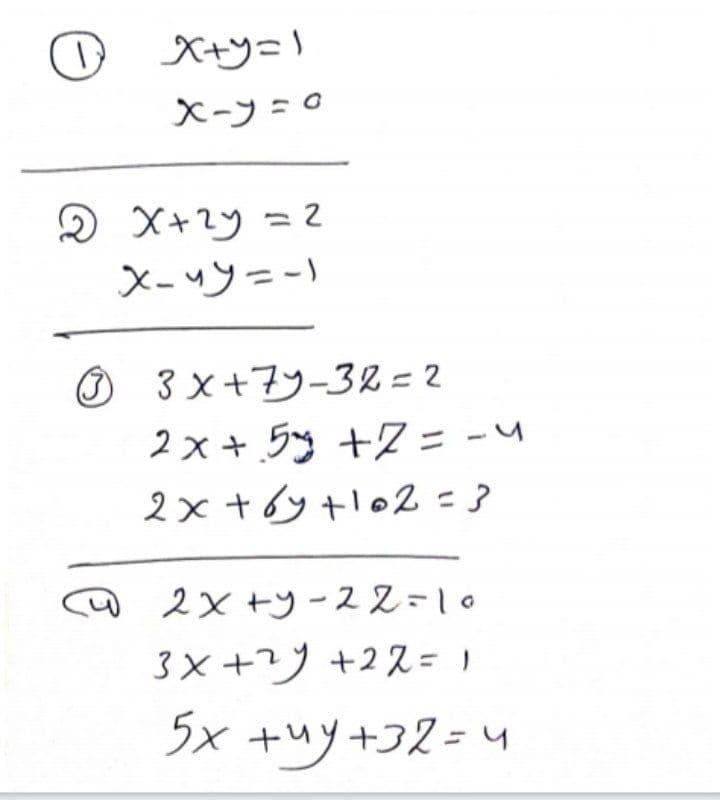 ① x+y=1
x-y=0
② x+2y=2
x-4y=-1
③ 3x+7y-3z=2
2x+5y+z=-4
2x+6y+10z=3
④ 2x+y-2z=10
3x+2y+2z=1
5x+4y+3z=4